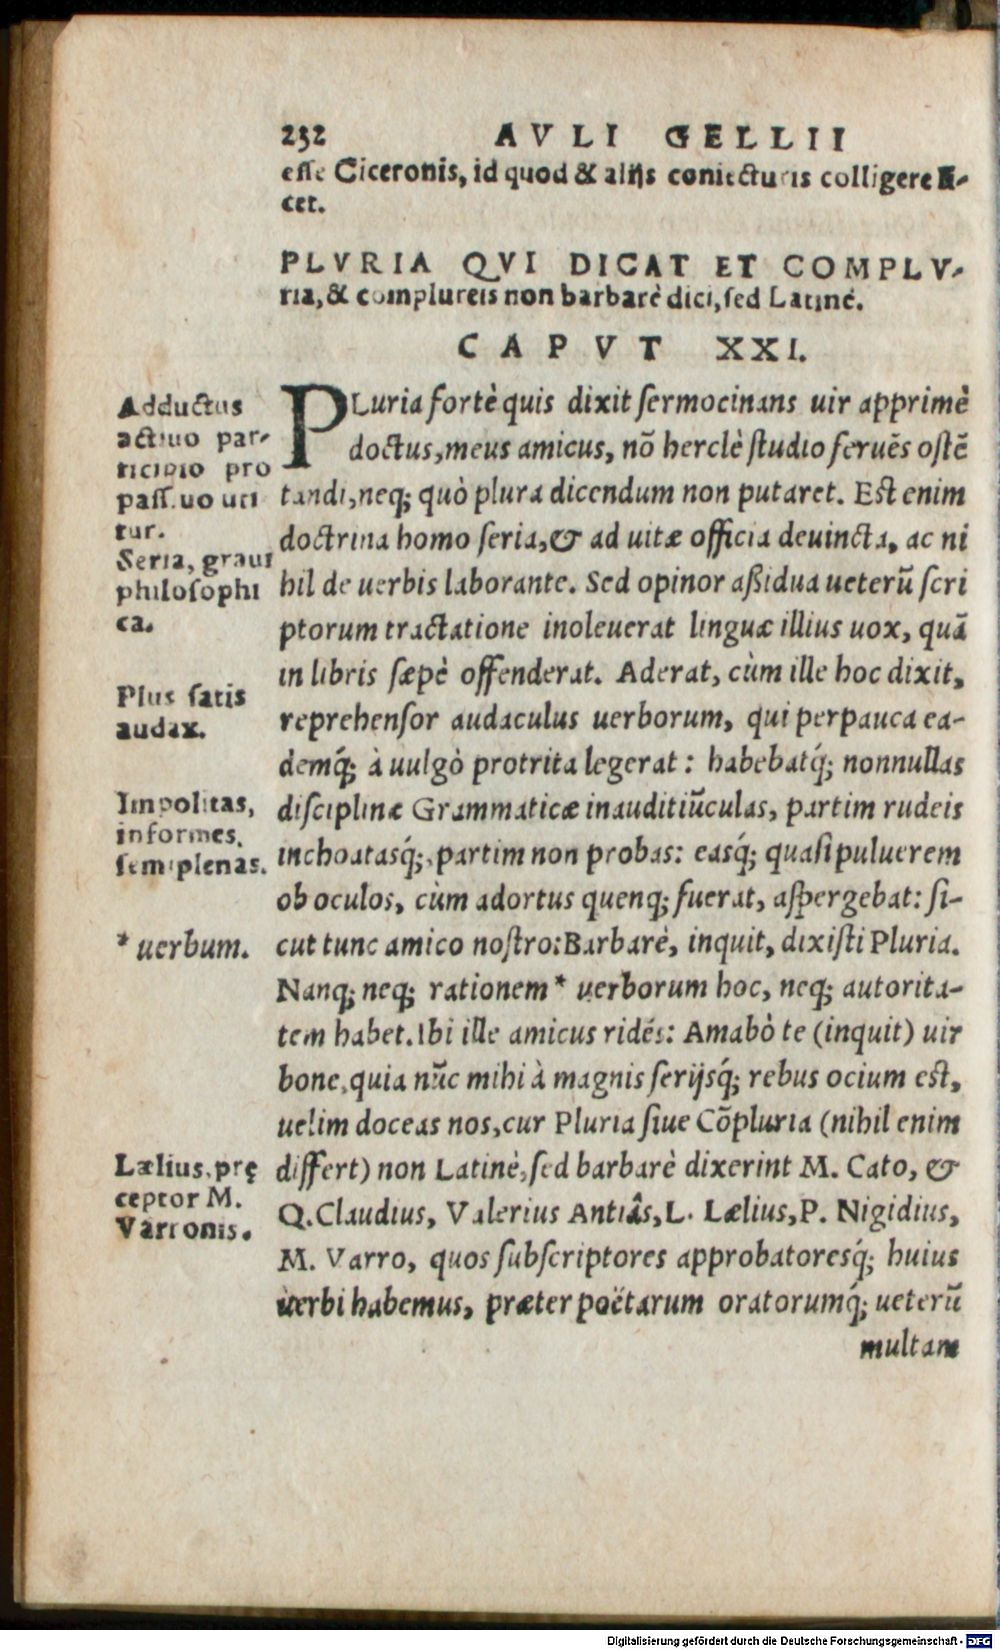 232 AVLI GELLII
esse Ciceronis, id quod & alijs coniecturis colligere li-
cet.
PLVRIA QVI DICAT ET COMPLV-
ria, & complureis non barbarè dici, sed Latinè.
CAPVT XXI.
PLuria fortè quis dixit sermocinans uir apprimè
doctus, meus amicus, nō herclè studio feruēs ostē
tandi, neq; quò plura dicendum non putaret. Est enim
doctrina homo seria, & ad uitæ officia deuincta, ac ni
hil de uerbis laborante. Sed opinor aßidua ueterū scri
ptorum tractatione inoleuerat linguæ illius uox, quā
in libris sæpè offenderat. Aderat, cùm ille hoc dixit,
reprehensor audaculus uerborum, qui perpauca ea-
demq́; à uulgò protrita legerat: habebatq́; nonnullas
disciplinæ Grammaticæ inauditiūculas, partim rudeis
inchoatasq́;, partim non probas: easq́; quasi puluerem
ob oculos, cùm adortus quenq; fuerat, aspergebat: si-
cut tunc amico nostro: Barbarè, inquit, dixisti Pluria.
Nanq; neq; rationem * uerborum hoc, neq; autorita-
tem habet. Ibi ille amicus ridēs: Amabò te (inquit) uir
bone, quia nūc mihi à magnis serijsq́; rebus ocium est,
uelim doceas nos, cur Pluria siue Cōpluria (nihil enim
differt) non Latinè, sed barbarè dixerint M. Cato, &
Q. Claudius, Valerius Antiâs, L. Lælius, P. Nigidius,
M. Varro, quos subscriptores approbatoresq́; huius
uerbi habemus, præter poëtarum oratorumq́; ueterū
multam
Adductus
actiuo par-
ticipio pro
passiuo uti
tur.
Seria, graui
philosophi
ca.
Plus satis
audax.
Impolitas,
informes,
semiplenas.
* uerbum.
Lælius, prę
ceptor M.
Varronis.
Digitalisierung gefördert durch die Deutsche Forschungsgemeinschaft - DFG